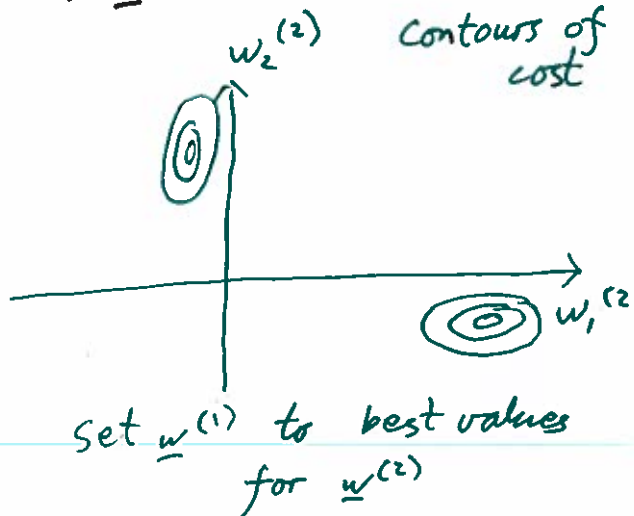 w₂⁽²⁾
contours of
cost
w₁⁽²
set w⁽¹⁾ to best values
for w⁽²⁾